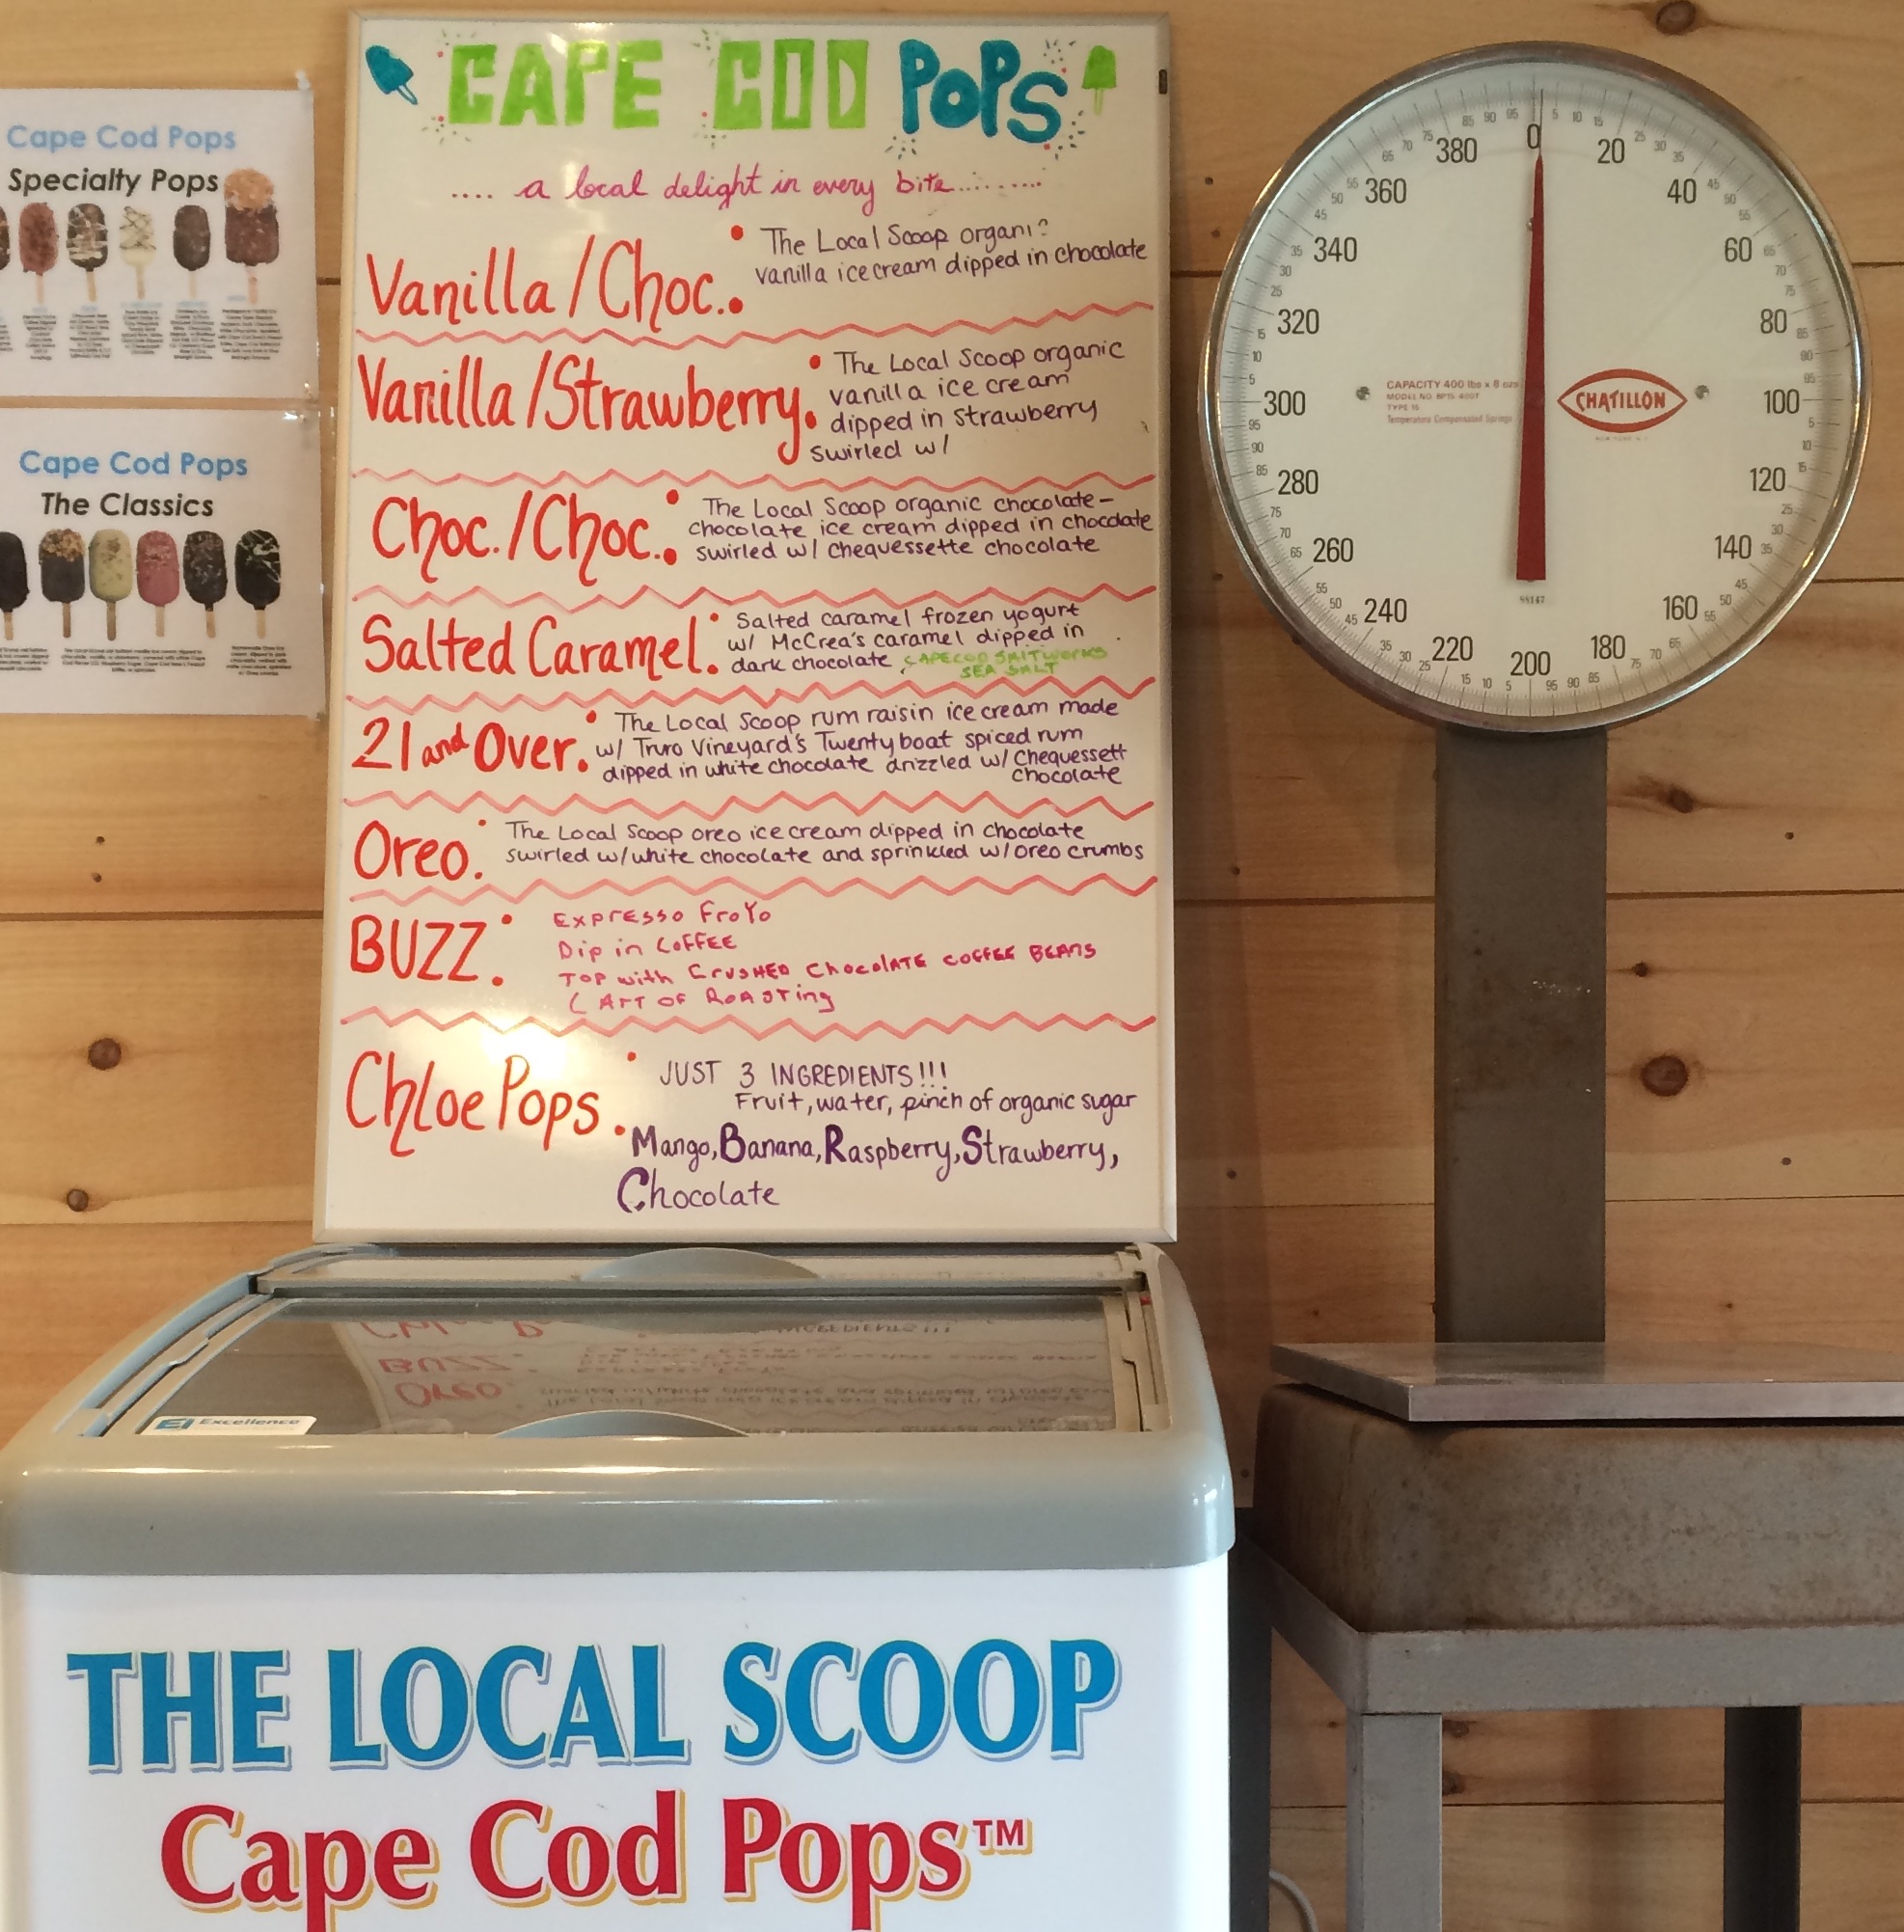 CAPE COD POPS
..... a local delight in every bite..........
Vanilla/Choc.:
The Local Scoop organi?
vanilla ice cream dipped in chocolate
Vanilla/Strawberry:
The Local Scoop organic
vanilla ice cream
dipped in Strawberry
swirled w/
Choc./Choc.:
The Local Scoop organic chocolate-
chocolate ice cream dipped in chocolate
swirled w/ chequessette chocolate
Salted Caramel:
Salted caramel frozen yogurt
w/ McCrea's caramel dipped in
dark chocolate, CAPE COD SALTWORKS
SEA SALT
21 and Over:
The Local Scoop rum raisin ice cream made
w/ Truro Vineyard's Twenty boat spiced rum
dipped in white chocolate drizzled w/ Chequessett
chocolate
Oreo:
The Local Scoop oreo ice cream dipped in chocolate
swirled w/white chocolate and sprinkled w/oreo crumbs
BUZZ:
Expresso FroYo
Dip in COFFEE
Top with CRUSHED Chocolate COFFEE BEANS
( ART OF ROASTing
Chloe Pops:
JUST 3 INGREDIENTS!!!
Fruit, water, pinch of organic sugar
Mango, Banana, Raspberry, Strawberry,
Chocolate
Cape Cod Pops
Specialty Pops
Cape Cod Pops
The Classics
0
20
40
60
80
100
120
140
160
180
200
220
240
260
280
300
320
340
360
380
CAPACITY 400 lbs x 8 ozs
TYPE 15
Temperature Compensated Springs
CHATILLON
NEW YORK N.Y.
Excellence
THE LOCAL SCOOP
Cape Cod Pops™